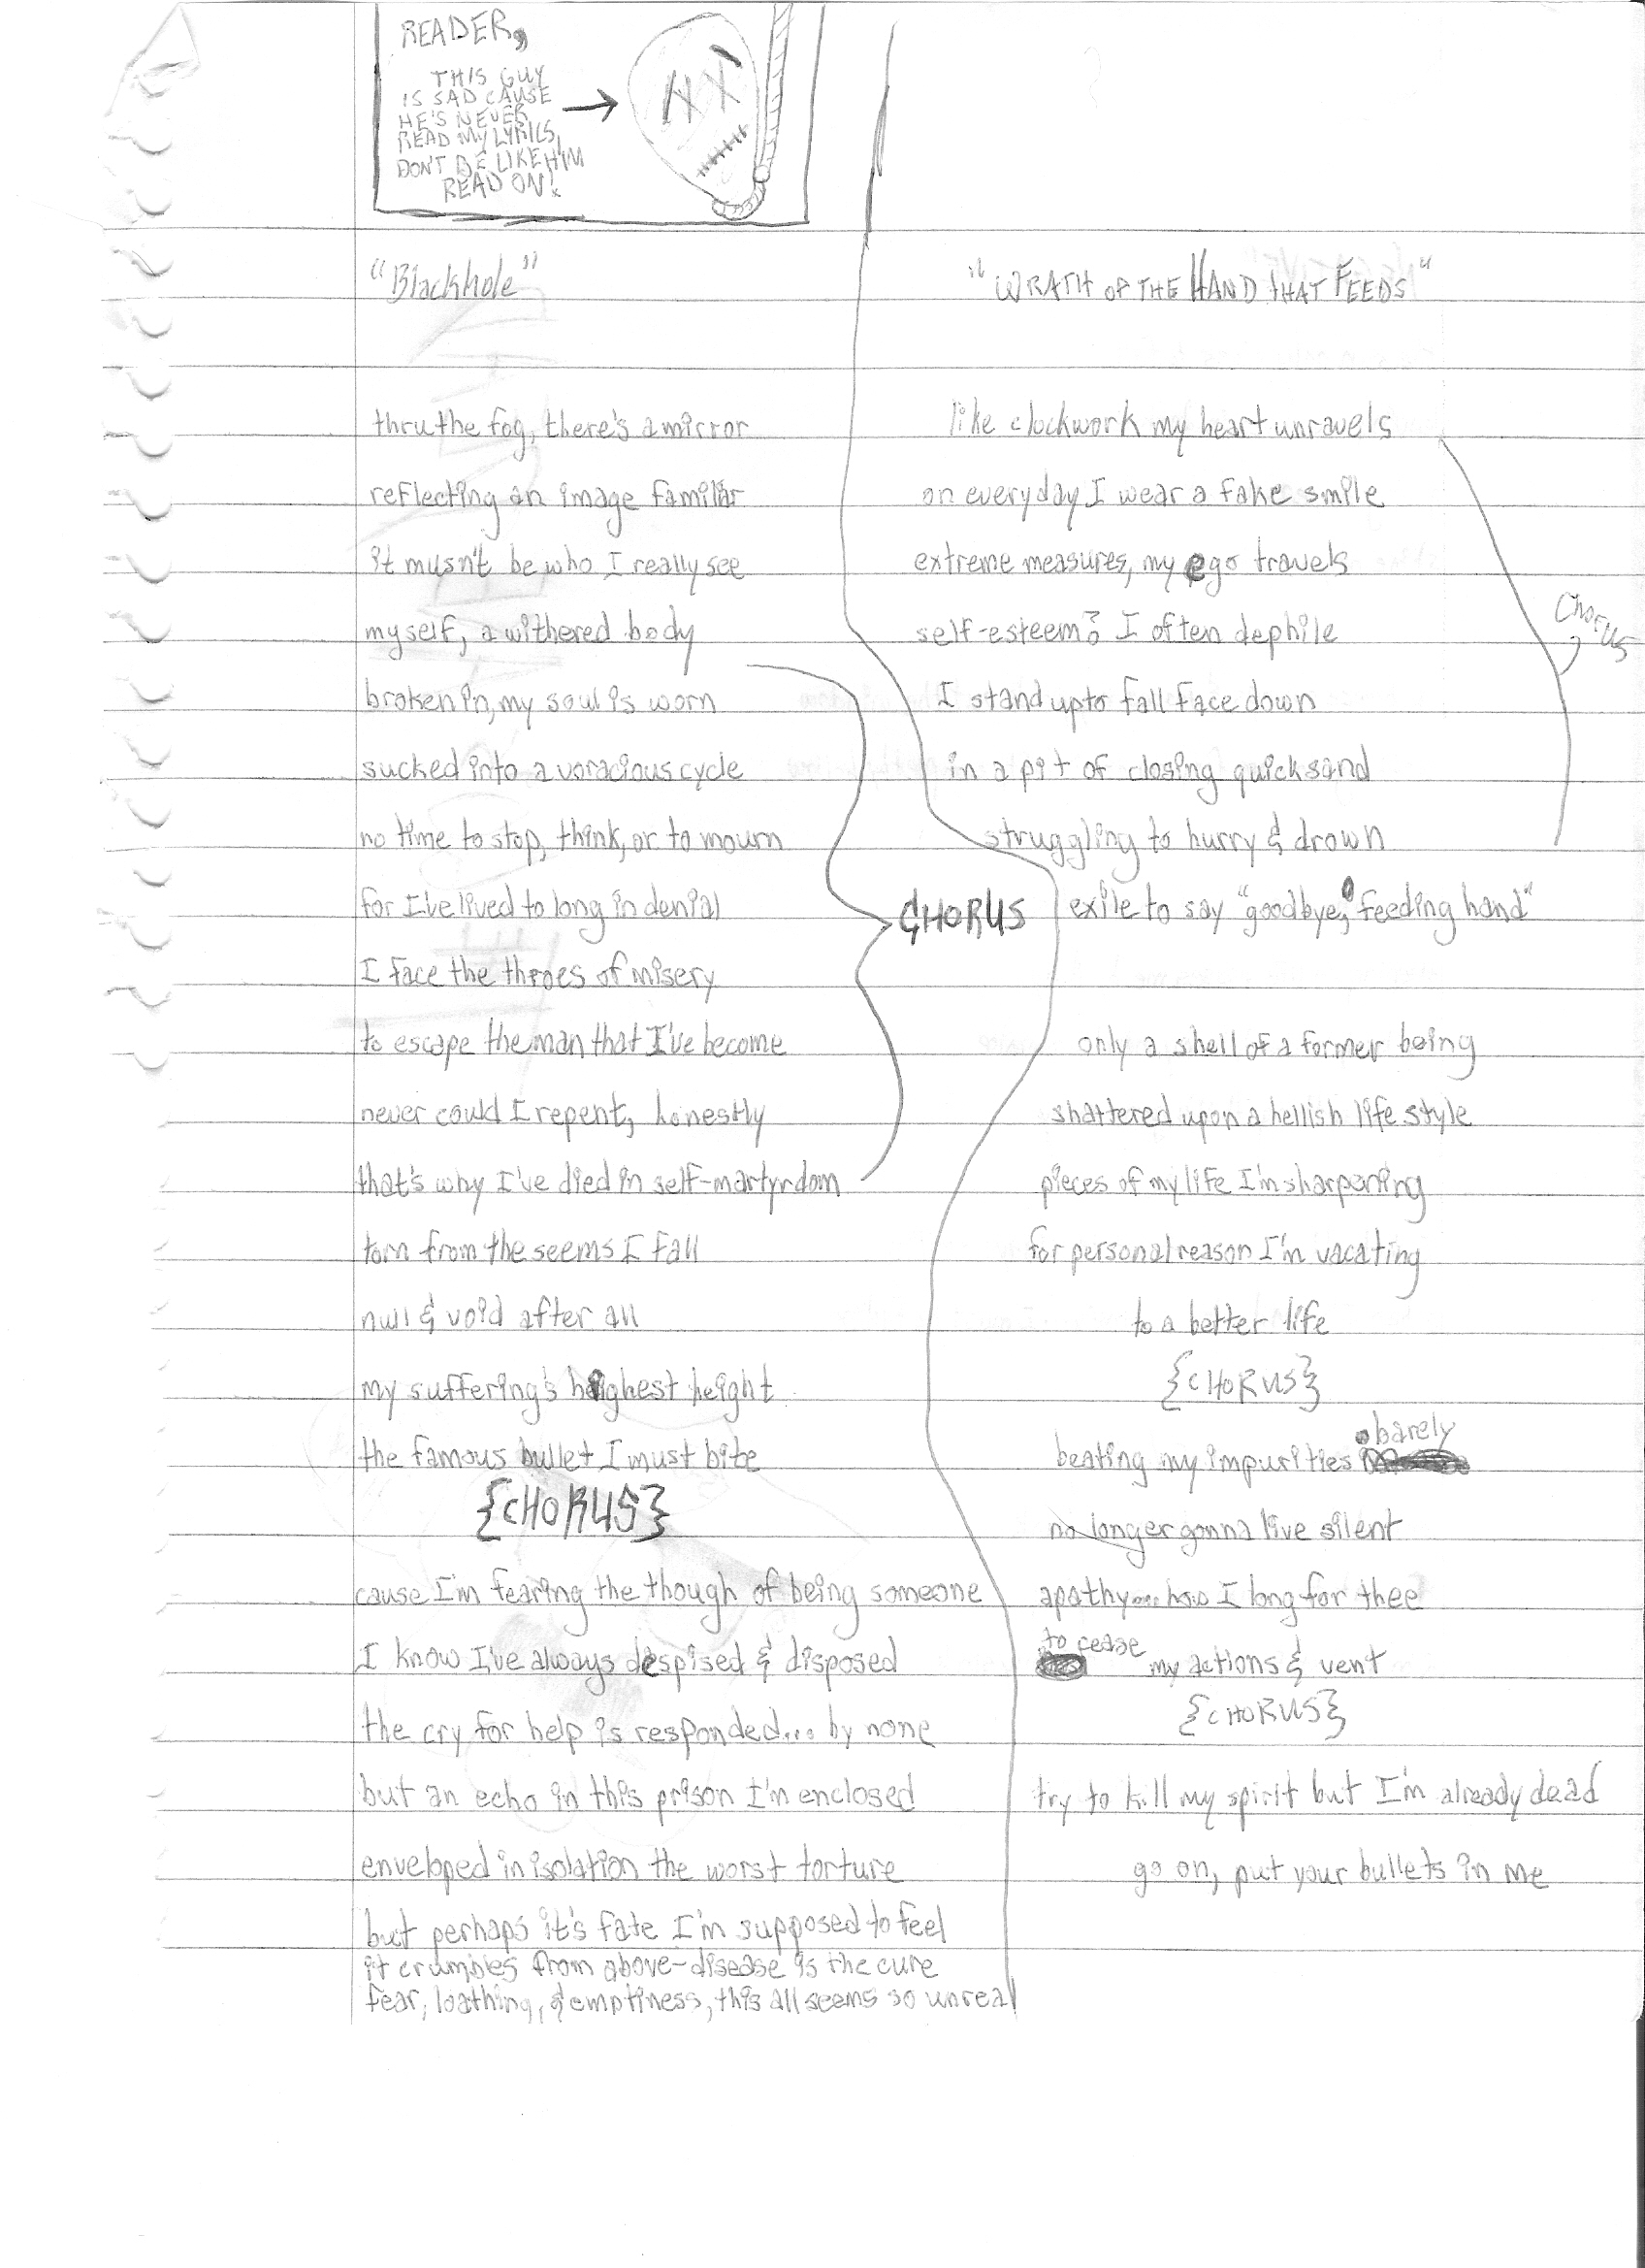 READER,
THIS GUY
IS SAD CAUSE
HE'S NEVER
READ MY LYRICS,
DON'T BE LIKE HIM
READ ON!
"Blackhole"
thru the fog, there's a mirror
reflecting an image familiar
it musn't be who I really see
myself, a withered body
broken in, my soul is worn
sucked into a voracious cycle
no time to stop, think, or to mourn
for I've lived to long in denial
I face the throes of misery
to escape the man that I've become
never could I repent, honestly
that's why I've died in self-martyrdom
CHORUS
torn from the seems I fall
null & void after all
my suffering's highest height
the famous bullet I must bite
{CHORUS}
cause I'm fearing the though of being someone
I know I've always despised & disposed
the cry for help is responded... by none
but an echo in this prison I'm enclosed
enveloped in isolation the worst torture
but perhaps it's fate I'm supposed to feel
it crumbles from above-disease is the cure
fear, loathing, & emptiness, this all seems so unreal
"WRATH OF THE HAND tHAT FEEDS"
like clockwork my heart unravels
on everyday I wear a fake smile
extreme measures, my ego travels
self-esteem? I often dephile
I stand up to fall face down
in a pit of closing quicksand
struggling to hurry & drown
exile to say "goodbye, feeding hand"
CHORUS
only a shell of a former being
shattered upon a hellish life style
pieces of my life I'm sharpening
for personal reason I'm vacating
to a better life
{CHORUS}
beating my impurities barely
no longer gonna live silent
apathy.... how I long for thee
to cease my actions & vent
{CHORUS}
try to kill my spirit but I'm already dead
go on, put your bullets in me